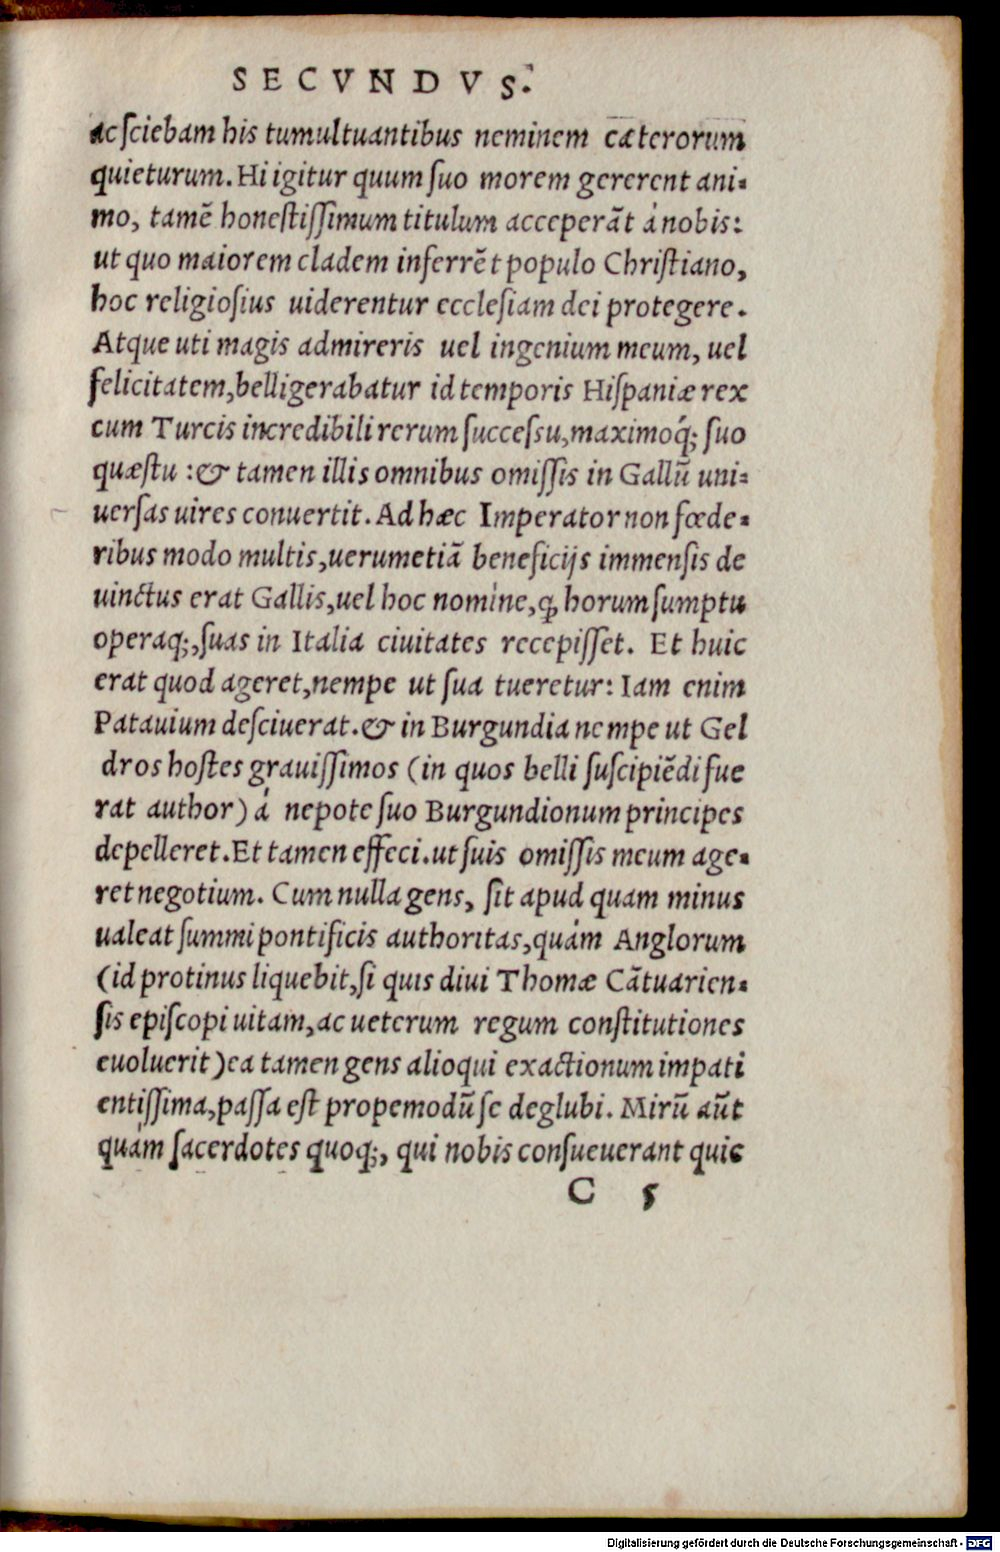 SECVNDVS.
ac ſciebam his tumultuantibus neminem cæterorum
quieturum. Hi igitur quum ſuo morem gererent ani-
mo, tamẽ honeſtiſſimum titulum acceperãt à nobis:
ut quo maiorem cladem inferrẽt populo Chriſtiano,
hoc religioſius uiderentur eccleſiam dei protegere.
Atque uti magis admireris uel ingenium meum, uel
felicitatem, belligerabatur id temporis Hiſpaniæ rex
cum Turcis incredibili rerum ſucceſſu, maximoq́; ſuo
quæſtu : & tamen illis omnibus omiſſis in Gallũ uni-
uerſas uires conuertit. Ad hæc Imperator non fœde-
ribus modo multis, uerumetiã beneficijs immenſis de
uinctus erat Gallis, uel hoc nomine, ꝙ horum ſumptu
operaq;, ſuas in Italia ciuitates recepiſſet. Et huic
erat quod ageret, nempe ut ſua tueretur: Iam enim
Patauium deſciuerat. & in Burgundia nempe ut Gel
dros hoſtes grauiſſimos (in quos belli ſuſcipiẽdi fue
rat author) á nepote ſuo Burgundionum principes
depelleret. Et tamen effeci. ut ſuis omiſſis meum age-
ret negotium. Cum nulla gens, ſit apud quam minus
ualeat ſummi pontificis authoritas, quám Anglorum
(id protinus liquebit, ſi quis diui Thomæ Cãtuarien-
ſis epiſcopi uitam, ac ueterum regum conſtitutiones
euoluerit) ea tamen gens alioqui exactionum impati
entiſſima, paſſa eſt propemodũ ſe deglubi. Mirũ aũt
quám ſacerdotes quoq;, qui nobis conſueuerant quic
C 5
Digitalisierung gefördert durch die Deutsche Forschungsgemeinschaft - DFG